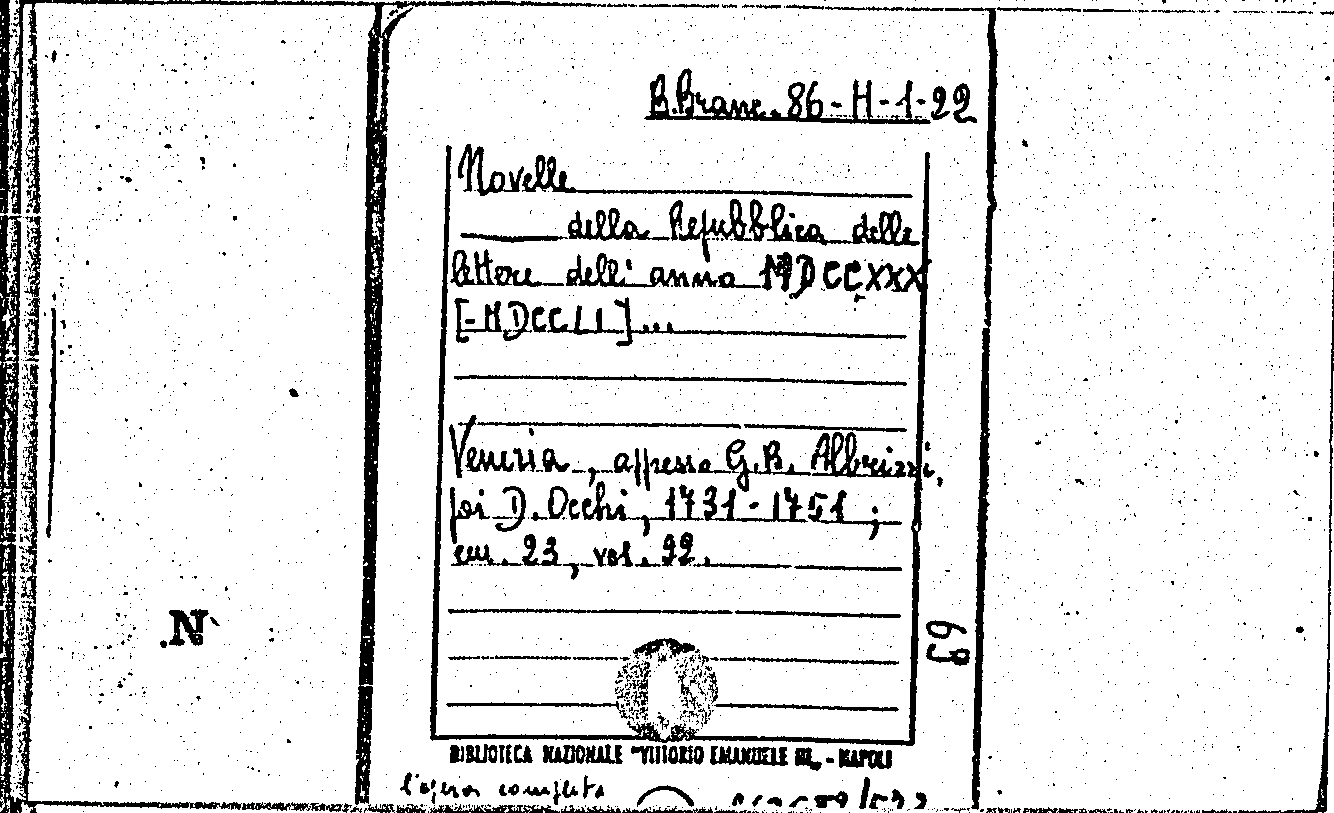 B.Branc. 86-H-1-22
Novelle
——— della Repubblica delle
lettere dell'anno MDCCXXX
[-MDCCLI]...
Venezia, appresso G.B. Albrizzi,
poi D. Occhi, 1731-1751;
cm. 23, vol. 22.
N
63
BIBLIOTECA NAZIONALE "VITTORIO EMANUELE III" - NAPOLI
l'opera completa